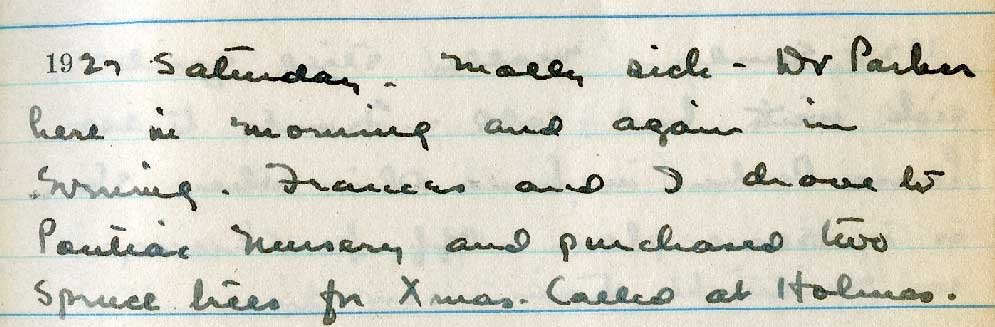 1927 Saturday. Molly sick - Dr Parker
here in morning and again in
evening. Frances and I drove to
Pontiac Nursery and purchased two
spruce trees for Xmas. Called at Holmes.